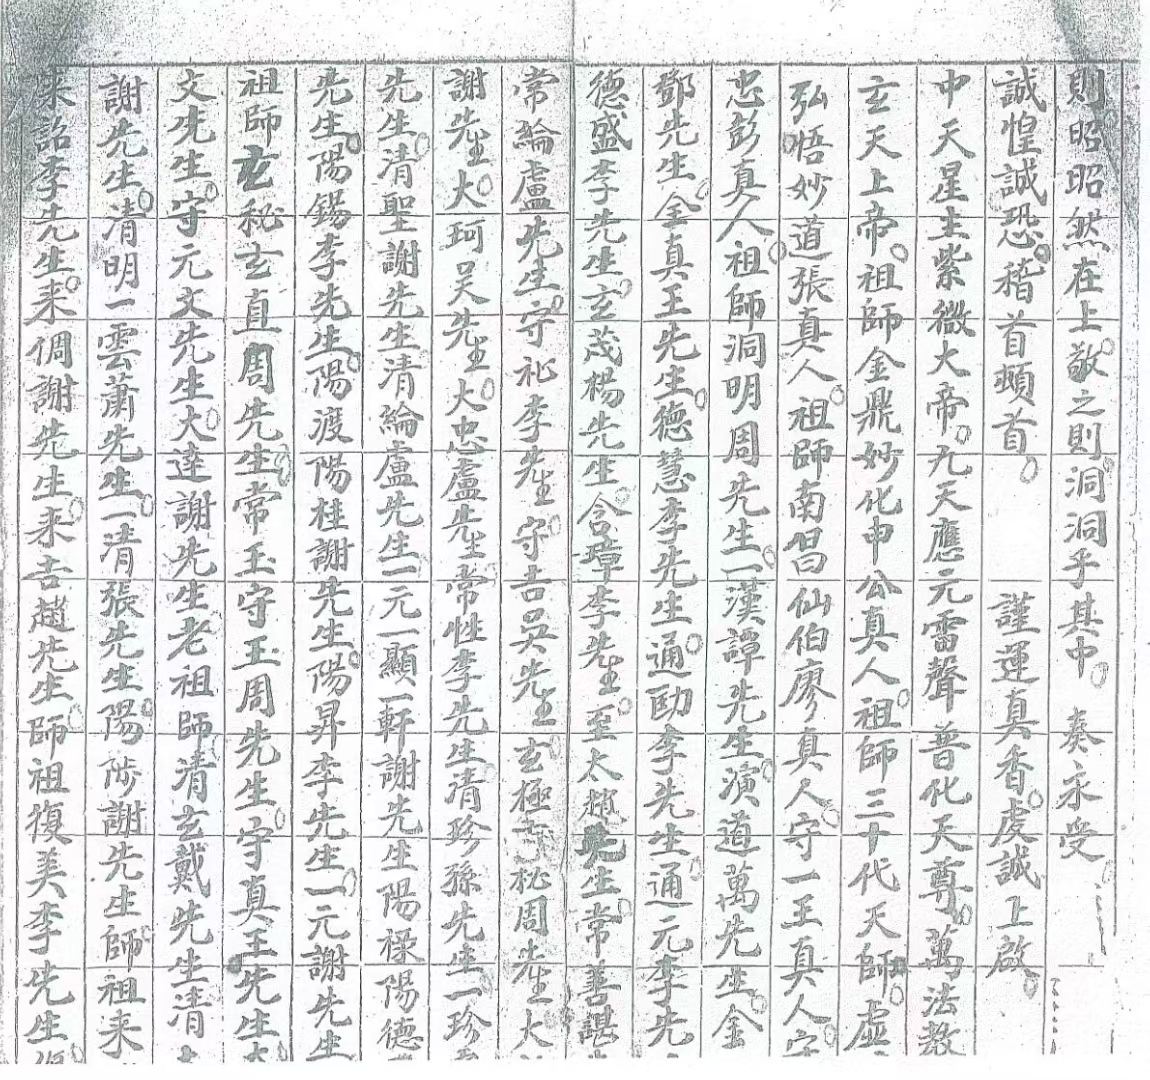 則昭昭然在上。敬之則洞洞乎其中。奏永受
誠惶誠恐。稽首頓首。謹運真香。虔誠上啟。
中天星主紫微大帝。九天應元雷聲普化天尊。萬法教
玄天上帝。祖師金鼎妙化申公真人。祖師三十代天師。虛
弘悟妙道張真人。祖師南昌仙伯廖真人。守一王真人。守
忠彭真人。祖師洞明周先生。一漢譚先生。演道萬先生。金
鄧先生。全真王先生。德慧李先生。通
李先生。通元李先
德盛李先生。玄茂楊先生。含璋李先生。至太趙先生。常善諶
常綸盧先生。守礼李先生。守吉吳先生。玄極玄秘周先生。大
謝先生。大珂吳先生。大忠盧先生。常性李先生。清珍孫先生。一珍
先生。清聖謝先生。清綸盧先生。一元一顯一軒謝先生。陽祿陽德
先生。陽錫李先生。陽渡陽桂謝先生。陽昇李先生。一元謝先生
祖師玄秘玄直周先生。常玉守玉周先生。守真王先生。
文先生。守元文先生。大達謝先生。老祖師清玄戴先生。清
謝先生。清明一雲蕭先生。一清張先生。陽陟謝先生。師祖来
来詔李先生。来倜謝先生。来吉趙先生。師祖復美李先生。復